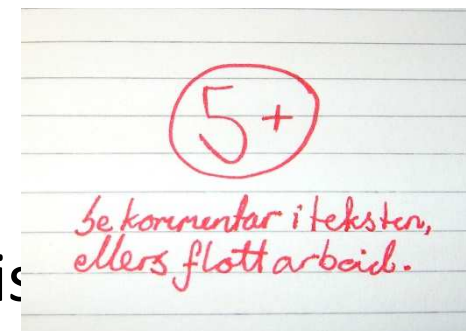 5+
Se kommentar i teksten,
ellers flott arbeid.
is